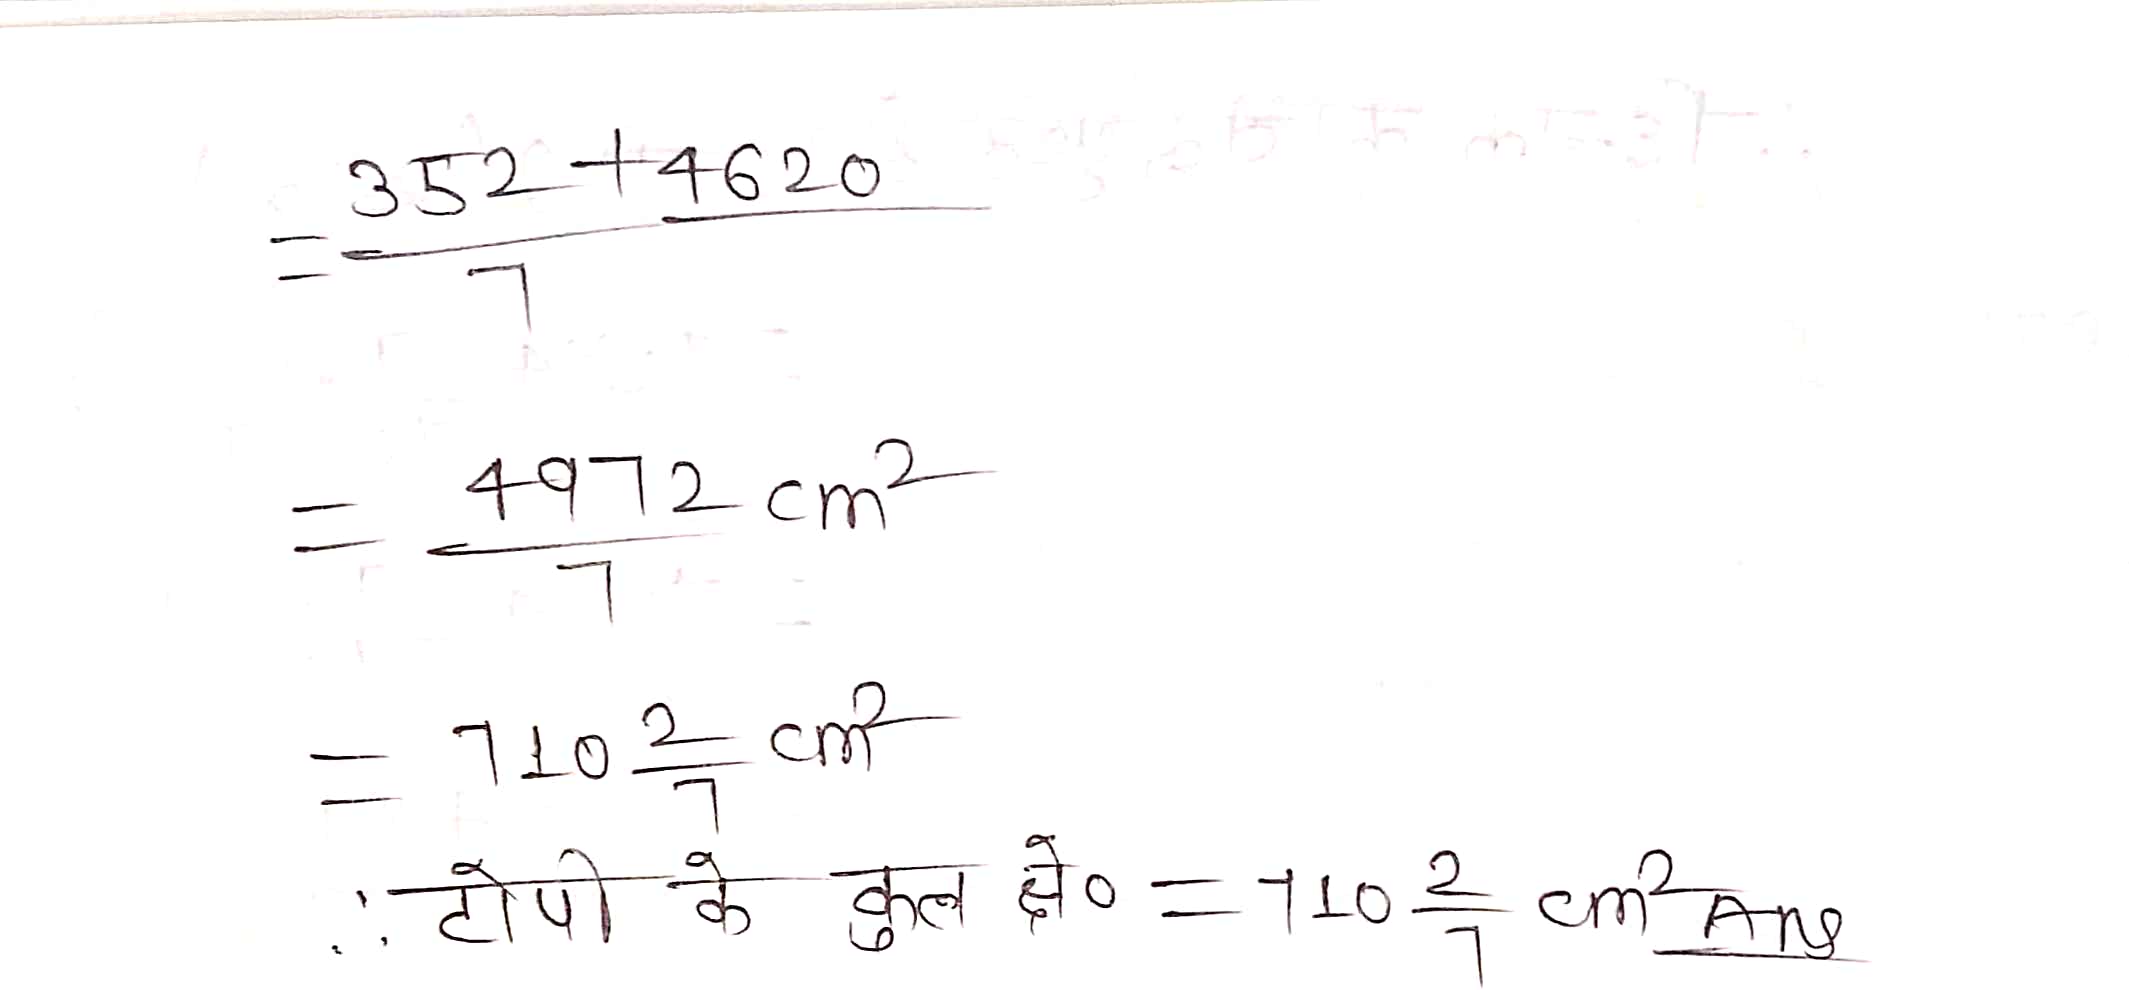 = 352 + 4620 / 7
= 4972 / 7 cm²
= 710 2/7 cm²
∴ टोपी के कुल क्षे० = 710 2/7 cm² Ans